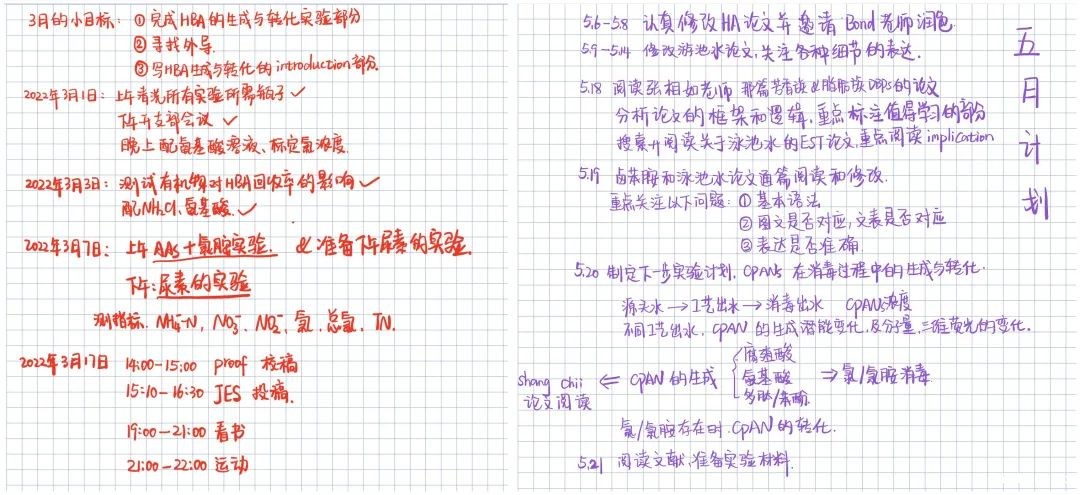 3月的小目标: ① 完成HBA的生成与转化实验部分
② 寻找外导.
③ 写HBA生成与转化的introduction部分.
2022年3月1日: 上午清洗所有实验所需瓶子 ✓
下午开支部会议 ✓
晚上配氨基酸溶液、标定氯浓度.
2022年3月3日: 测试有机物对HBA回收率的影响 ✓
配NH₂Cl、氨基酸. ✓
2022年3月7日: 上午 AAs + 氯胺实验. & 准备下午尿素的实验.
下午: 尿素的实验
测指标. NH₄⁺-N, NO₃⁻, NO₂⁻, 氯, 总氯, TN.
2022年3月17日 14:00-15:00 proof 校稿
15:10-16:30 JES 投稿.
19:00-21:00 看书
21:00-22:00 运动
五月计划
5.6-5.8 认真修改HA论文并邀请Bond老师润色.
5.9-5.14 修改游泳池水论文, 关注各种细节的表达.
5.18 阅读张相如老师 那篇 DBPs的论文
分析论文的框架和逻辑, 重点标注值得学习的部分
搜索并阅读关于泳池水的EST论文, 重点阅读 implication
5.19 卤苯胺和泳池水论文通篇阅读和修改.
重点关注以下问题: ① 基本语法
② 图文是否对应, 文表是否对应
③ 表达是否准确
5.20 制定下一步实验计划. CPANs 在消毒过程中的生成与转化.
源头水 → 工艺出水 → 消毒出水 CPANs浓度
不同工艺出水, CPAN 的生成潜能变化, 及分子量, 三维荧光的变化.
shang chii 论文阅读 ⇐ CPAN 的生成 { 腐殖酸 氨基酸 多肽/ ⇒ 氯/氯胺消毒
氯/氯胺存在时. CPAN 的转化.
5.21 阅读文献, 准备实验材料.